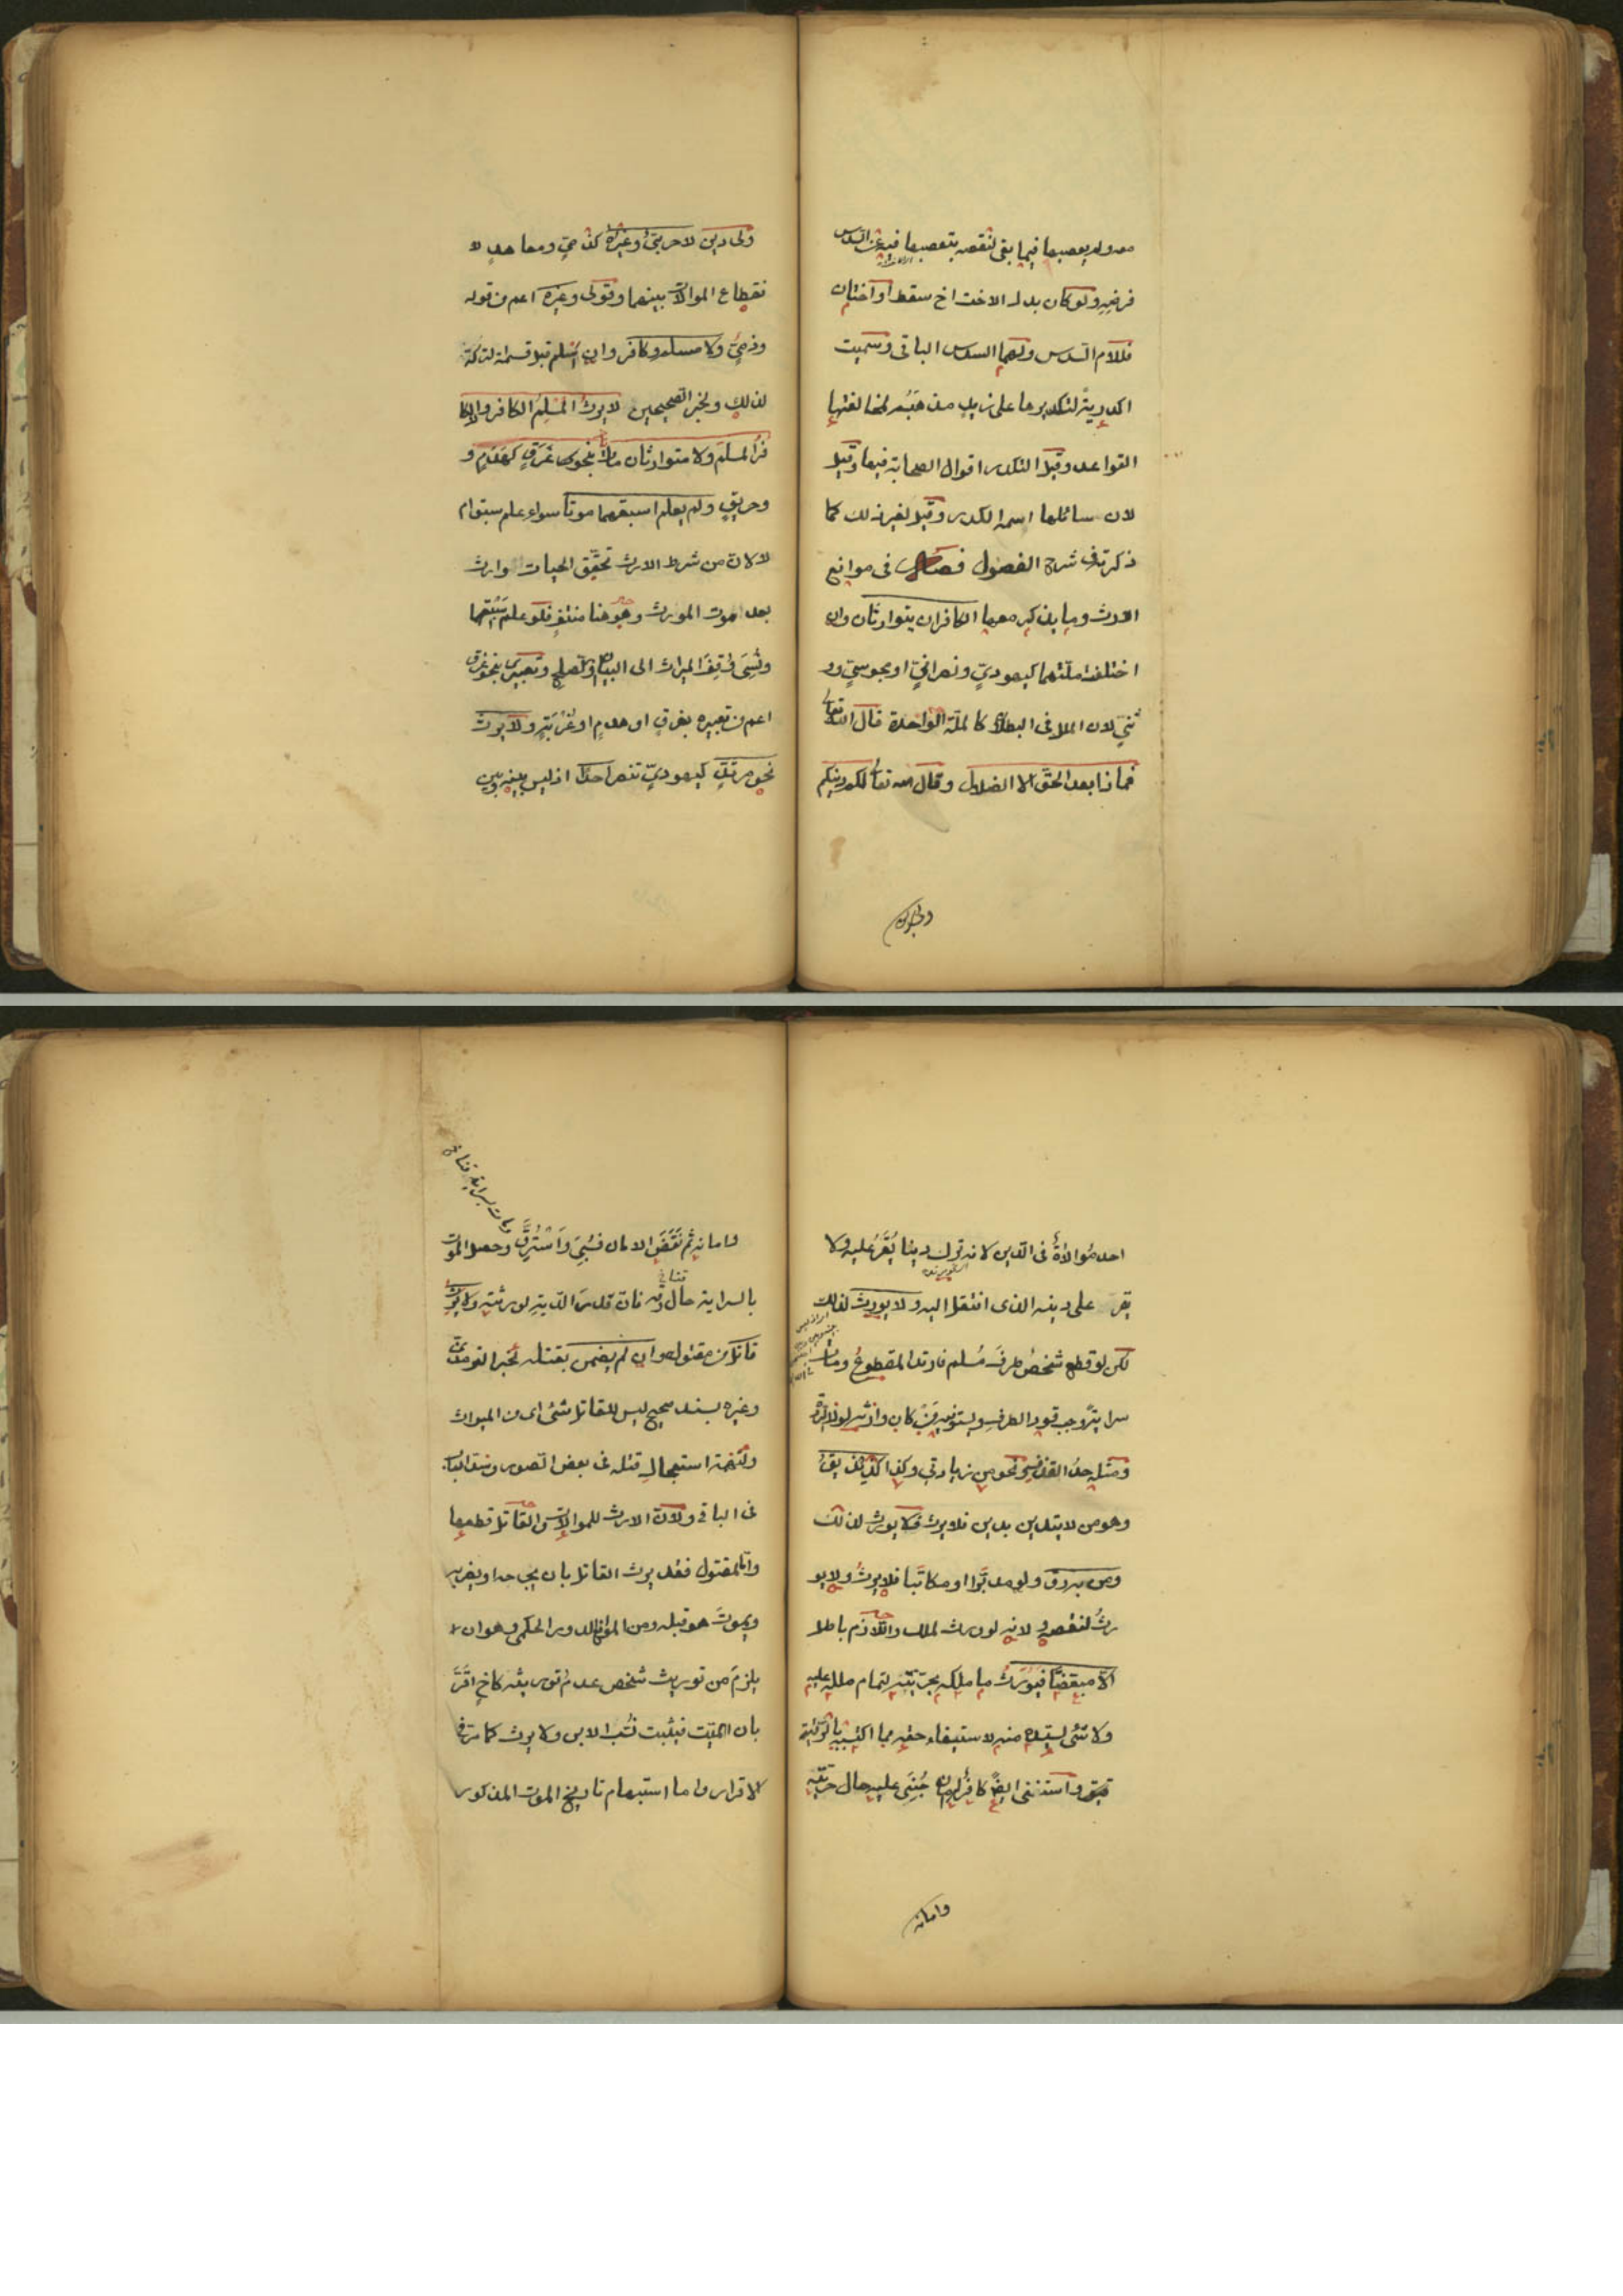 معه ولم يعصبها فيما بقى لنقصه بتعصبها فيه عن السدس
فرضه ولو كان بدل الاخت اخ سقط او اختان
فللام السدس ولهما السدس الباقى وسميت
اكدرية لتكديرها على زيد مذهبه لمخالفتها
القواعد وقيل لتكدر اقوال الصحابة فيها وقيل
لان سائلها اسمه اكدر وقيل لغير ذلك كما
ذكرته فى شرح الفصول فصل فى موانع
الارث وما يذكر معها الكافران يتوارثان وان
اختلفت ملتهما كيهودي ونصراني او مجوسي وو
ثني لان الملل فى البطلان كالملة الواحدة قال الله تعالى
فماذا بعد الحق الا الضلال وقال تعالى لكم دينكم
ولى دين
ولى دين لا حربي وغيره كذمي ومعاهد لا
نقطاع الموالاة بينهما وقولى وغيره اعم من قوله
وذمي ولا مسلم وكافر وان اسلم قبل قسمة التركة
لذلك ولخبر الصحيحين لا يرث المسلم الكافر ولا الكا
فر المسلم ولا متوارثان ماتا بنحو غرق كهدم و
وحريق ولم يعلم اسبقهما موتا سواء علم سبق ام
لا لان من شرط الارث تحقق الحيات وارث
بعد موت المورث وهو هنا منتف فلو علم سبقهما
ونسى وقف الميراث الى البيان او الصلح وتعبيرى بنحو غرق
اعم من تعبيره بغرق او هدم او غربة ولا يرث
نحو مرتد كيهودي تنصر احدا اذ ليس بينه وبين
احد موالاة فى الدين لانه ترك دينا يقر عليه ولا
يقر على دينه الذى انتقل اليه ولا يورث لذلك
لكن لو قطع شخص طرف مسلم فارتد المقطوع ومات
سراية وجب قود الطرف ويستوفيه من كان وارثه لولا الردة
ومثله حد القذف نحو من زيادتى وكذا كزنديق
وهو من لا يتدين بدين فلا يرث ولا يورث لذلك
ومن به رق ولو مدبرا او مكاتبا فلا يرث ولا يو
رث لنقصه ولانه لو ورث لملك واللازم باطل
الا مبعضا فيورث ما ملكه بحريته لتمام ملكه عليه
ولا شئ لسيده منه لاستيفاء حقه مما اكتسبه بالرقية
واستثنى ايضا كافر له امان جني عليه حال حريته
وامانه
وامانه ثم نقض الامان فسبي واسترق وحصل الموت
بالسراية حال رقه فان قدر الدية لورثته ولا يرث
قاتل من مقتوله وان لم يضمن بقتله لخبر الترمذى
وغيره بسند صحيح ليس للقاتل شئ اى من الميراث
ولتهمة استعجال قتله فى بعض الصور وسد الباب
فى الباقى ولان الارث للموالاة والقاتل قطعها
واما المقتول فقد يرث القاتل بان يجرحه او يضربه
ويموت هو قبله ومن الموانع الدور الحكمى وهو ان
يلزم من توريث شخص عدم توريثه كاخ اقر
بابن للميت فيثبت نسب الابن ولا يرث كما مر فى
الاقرار واما استبهام تاريخ الموت المذكور